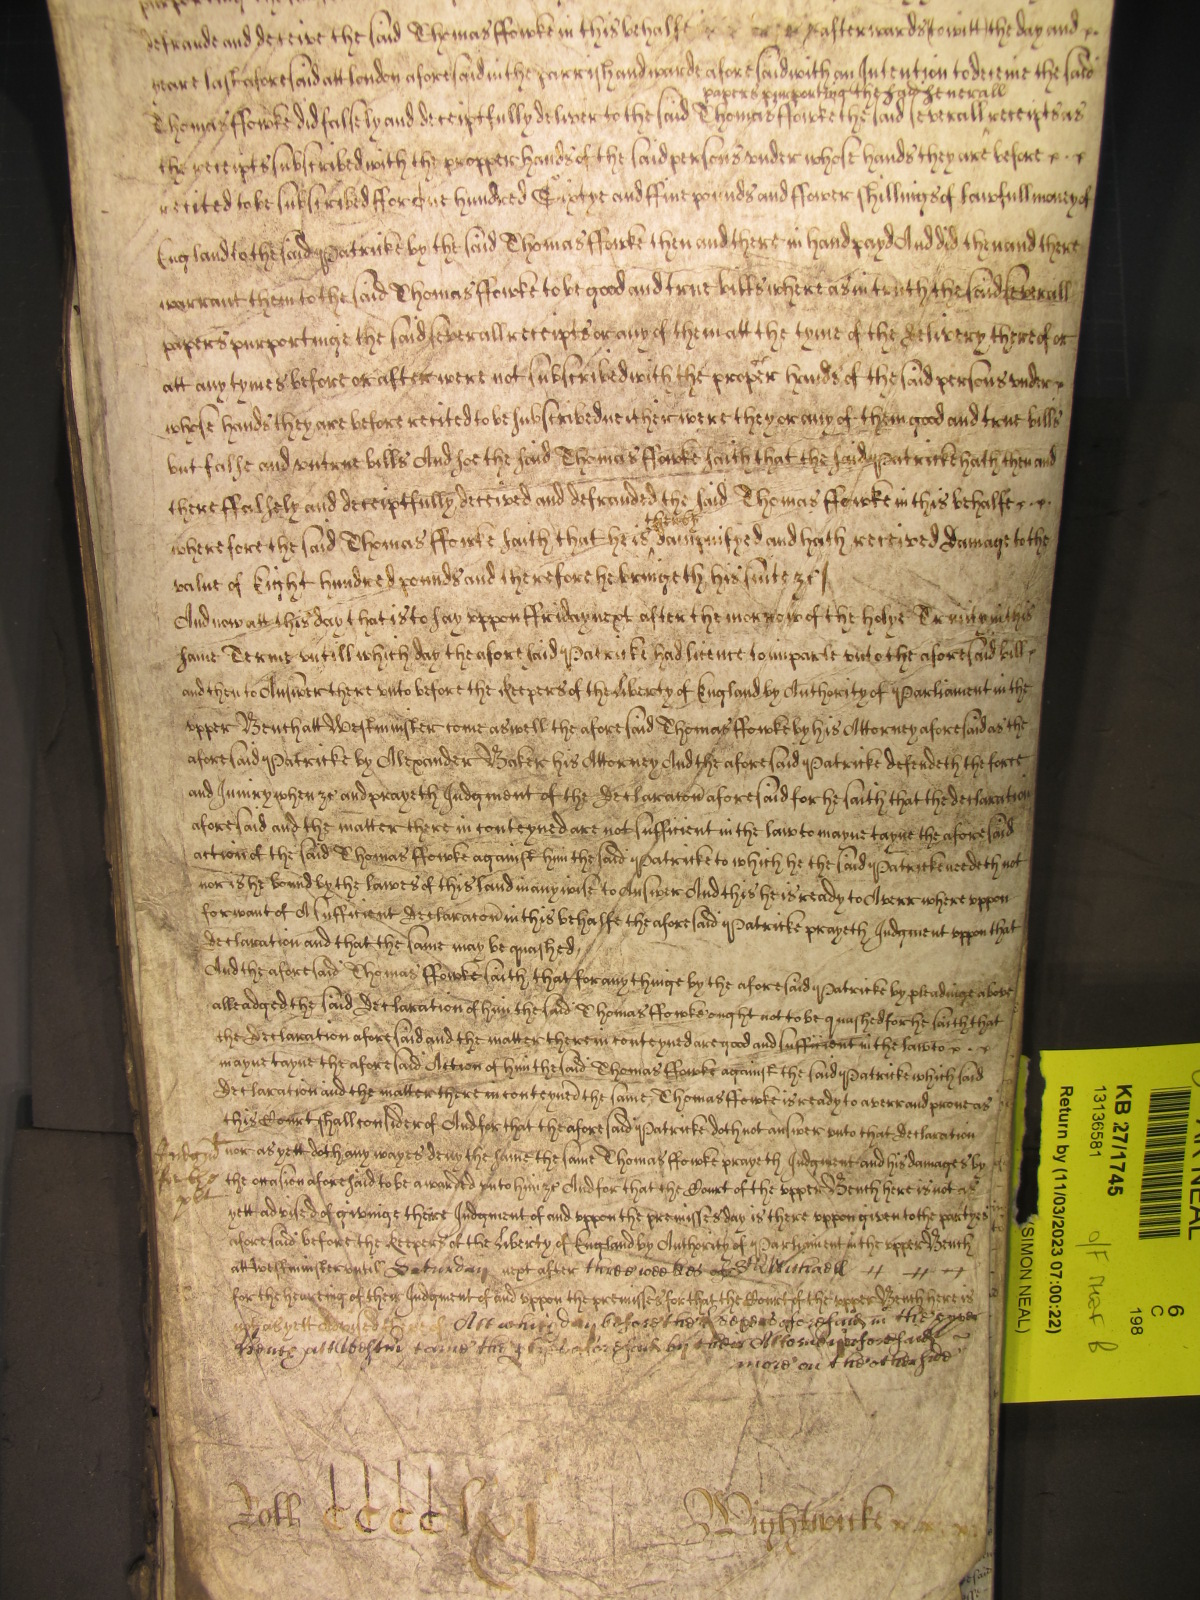 defraude and deceive the said Thomas ffowke in this behalfe afterwards to witt the day and
yeare last aforesaid att london aforesaid in the parrish and warde aforesaid with an Intention to deceive the said
papers purporting the said severall
Thomas ffowke did falsely and deceiptfully deliver to the said Thomas ffowke the said severall receipts as
the receipts subscribed with the propper hands of the said persons under whose hands they are before
recited to be subscribed ffor One hundred Sixtye and ffive pounds and ffower shillings of lawfull money of
England to the said Patricke by the said Thomas ffowke then and there in hand payd And did then and there
warrant them to the said Thomas ffowke to be good and true bills whereas in truth the said severall
papers purportinge the said severall receipts or any of them att the tyme of the delivery thereof or
att any tymes before or after were not subscribed with the proper hands of the said persons under
whose hands they are before recited to be subscribed neither were they or any of them good and true bills
but false and untrue bills And soe the said Thomas ffowke saith that the said Patricke hath then and
there ffalsely and deceiptfully deceived and defrauded the said Thomas ffowke in this behalfe
thereby
wherefore the said Thomas ffowke saith that he is dampnifyed and hath received Damage to the
value of Eight hundred pounds and therefore he bringeth his suite &c
And now att this day that is to say uppon ffriday next after the morrow of the holye Trinity in this
same Terme untill which day the aforesaid Patricke had licence to imparle unto the aforesaid bill
and then to Answer there unto before the Keepers of the liberty of England by Authority of Parliament in the
upper Bench att Westminster come aswell the aforesaid Thomas ffowke by his Attorney aforesaid as the
aforesaid Patricke by Alexander Baker his Attorney And the aforesaid Patricke defendeth the force
and Iniury when &c and prayeth Iudgment of the Declaracon aforesaid for he saith that the declaration
aforesaid and the matter there in conteyned are not sufficient in the law to mayntayne the aforesaid
action of the said Thomas ffowke against him the said Patricke to which he the said Patricke needeth not
nor is he bound by the lawes of this land in any wise to Answer And this he is ready to Averr where uppon
for want of A sufficient Declaracon in this behalfe the aforesaid Patricke prayeth Iudgment uppon that
declaration and that the same may be quashed
And the aforesaid Thomas ffowke saith that for any thinge by the aforesaid Patricke by pleadinge above
alleadged the said Declaration of him the said Thomas ffowke ought not to be quashed for he saith that
the Declaration aforesaid and the matter there in conteyned are good and sufficient in the law to
mayntayne the aforesaid Action of him the said Thomas ffowke against the said Patricke which said
Declaration and the matter there in conteyned the same Thomas ffowke is ready to averr and prove as
this Court shall consider of And for that the aforesaid Patricke doth not answer unto that declaration
Iudgmt for the plt
nor as yett doth any wayes deny the same the same Thomas ffowke prayeth Iudgment and his damages by
the occasion aforesaid to be awarded unto him &c And for that the Court of the upper Bench here is not as
yett advised of givinge theire Iudgment of and uppon the premisses day is there uppon given to the partyes
aforesaid before the Keepers of the liberty of England by Authority of Parliament in the upper Bench
att Westminster untill Saturday next after three weekes of St Michaell
for the heareing of their Iudgment of and uppon the premisses for that the Court of the upper Bench here is
not as yett advised thereof Att which day before the Keepers aforesaid in the upper
Bench att Westm came the partyes aforesaid by their Attorneys aforesaid
more on the other side
Roll CCCClxj
Wightwicke
KB 27/1745
13136581
Return by (11/03/2023 07:00:22)
(SIMON NEAL)
6
C
198